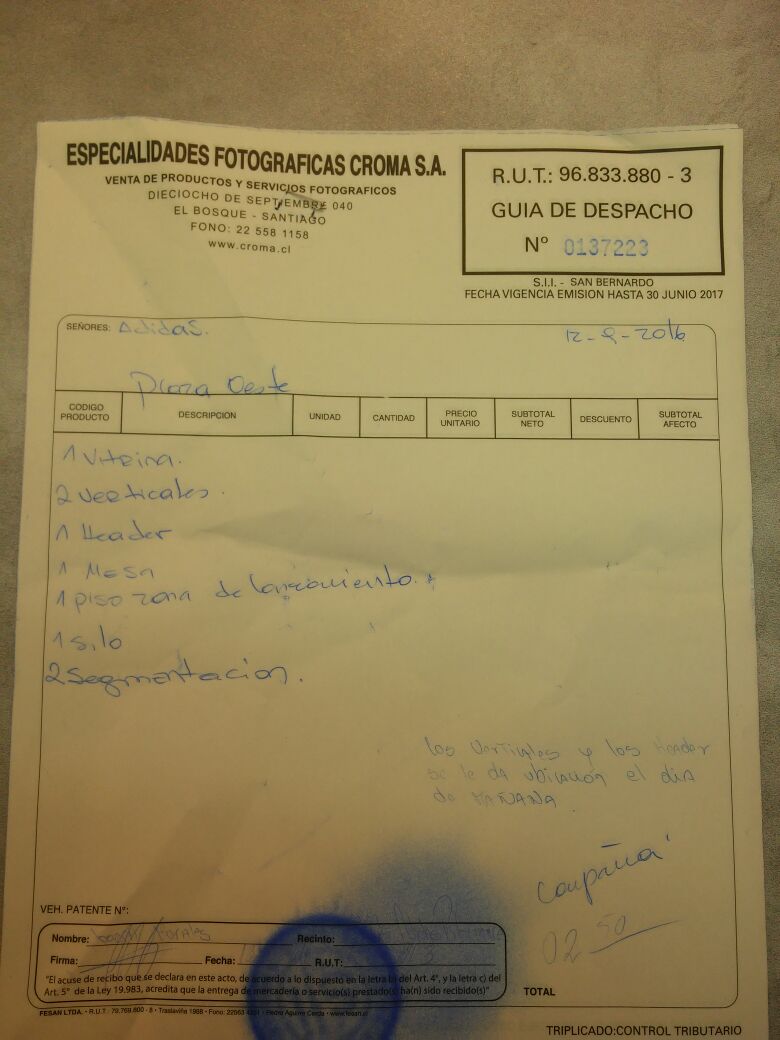 ESPECIALIDADES FOTOGRAFICAS CROMA S.A.
VENTA DE PRODUCTOS Y SERVICIOS FOTOGRAFICOS
DIECIOCHO DE SEPTIEMBRE 040
EL BOSQUE - SANTIAGO
FONO: 22 558 1158
www.croma.cl
R.U.T.: 96.833.880 - 3
GUIA DE DESPACHO
Nº 0137223
S.I.I. - SAN BERNARDO
FECHA VIGENCIA EMISION HASTA 30 JUNIO 2017
SEÑORES: Adidas. 12-9-2016
Plaza Oeste
CODIGO PRODUCTO DESCRIPCION UNIDAD CANTIDAD PRECIO UNITARIO SUBTOTAL NETO DESCUENTO SUBTOTAL AFECTO
1 Vitrina.
2 Verticales.
1 Header
1 Mesa
1 piso zona de lanzamiento.
1 silo
2 Segmentacion.
los Verticales y los Header
se le da ubicación el dia
de MAÑANA.
Campaña
02 50
VEH. PATENTE Nº:
Nombre: Recinto:
Firma: Fecha: R.U.T.:
"El acuse de recibo que se declara en este acto, de acuerdo a lo dispuesto en la letra b) del Art. 4º, y la letra c) del
Art. 5º de la Ley 19.983, acredita que la entrega de mercadería o servicio(s) prestado(s) ha(n) sido recibido(s)"
TOTAL
FESAN LTDA. • R.U.T.: 79.769.800 - 8 • Traslaviña 1988 • Fono: Pedro Aguirre Cerda • www.fesan.cl
TRIPLICADO:CONTROL TRIBUTARIO